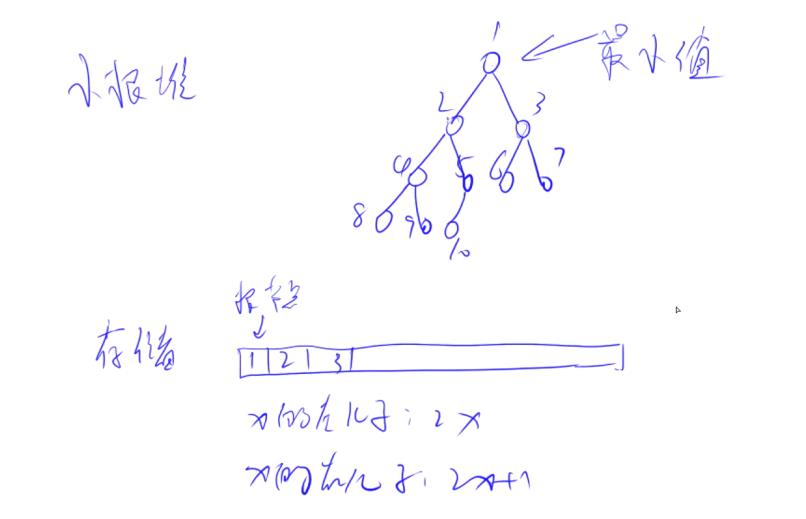 小根堆
1
最小值
2
3
4
5
6
7
8
9
10
根节点
存储
1 2 3
x的左儿子: 2x
x的右儿子: 2x+1